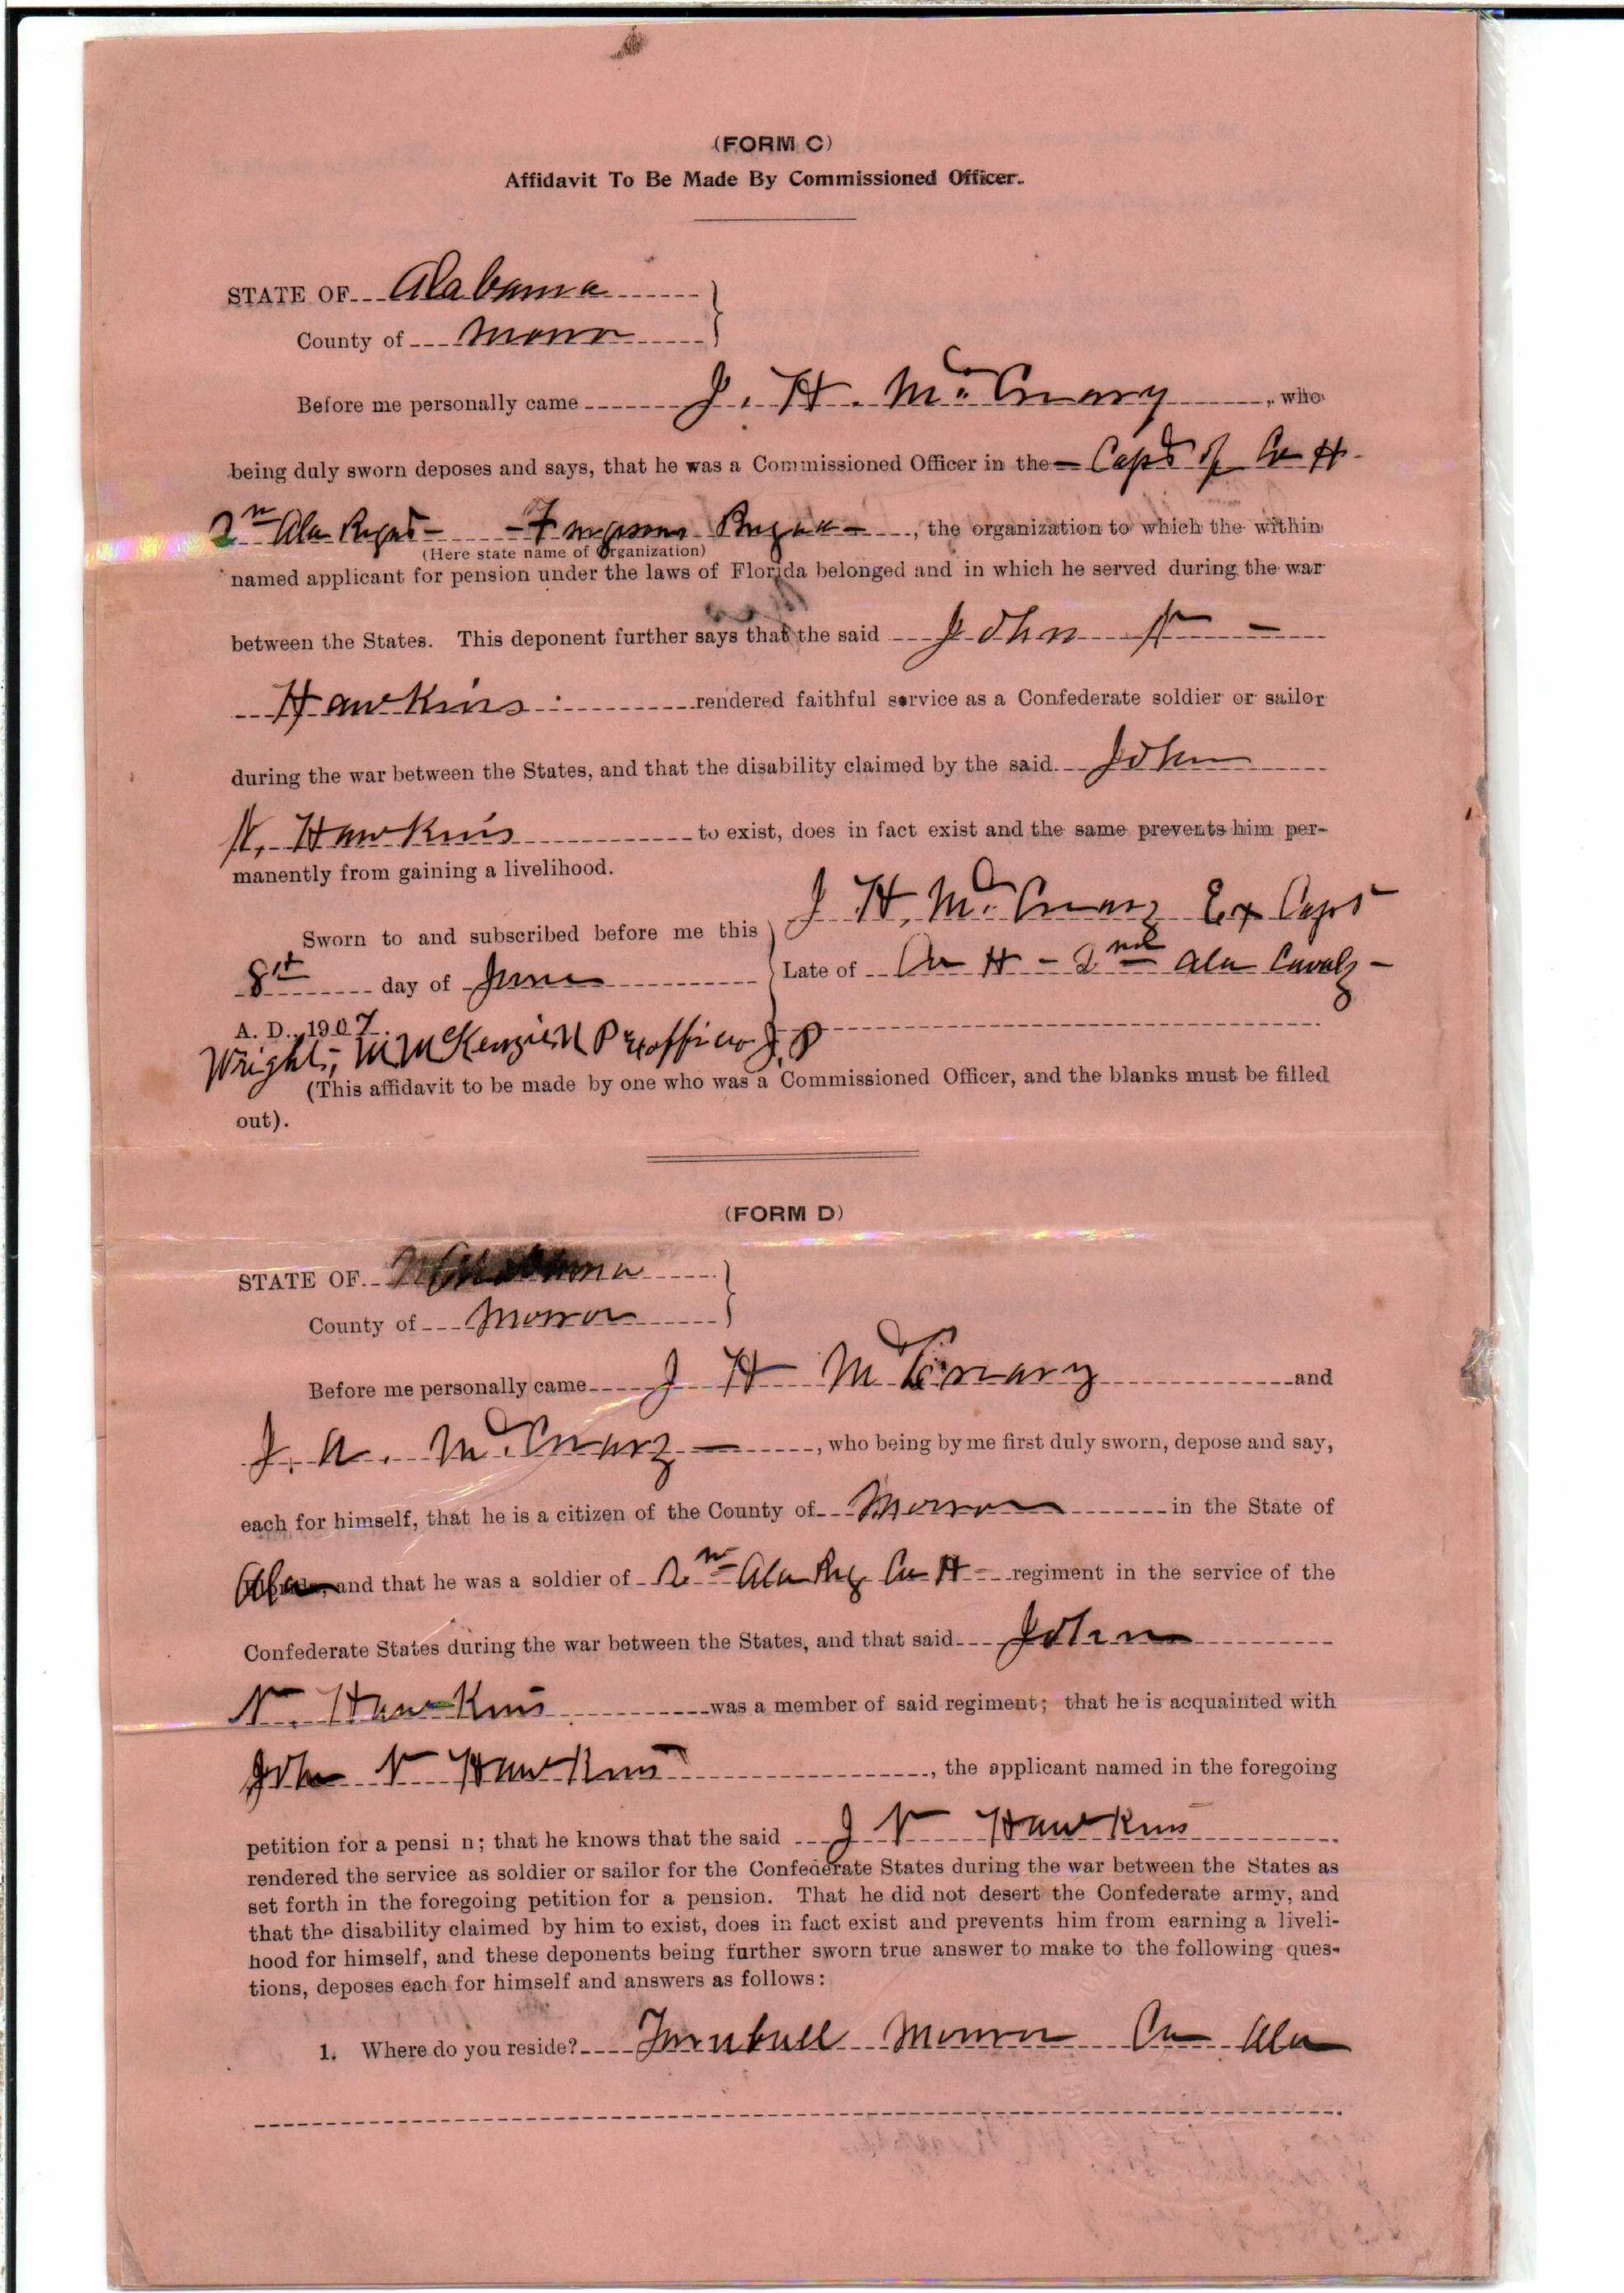 (FORM C)
Affidavit To Be Made By Commissioned Officer.
STATE OF Alabama
County of Monroe
Before me personally came J. H. McCreary, who
being duly sworn deposes and says, that he was a Commissioned Officer in the Capt of Co H
2n Ala Regt - Fergusons Brigade, the organization to which the within
(Here state name of Organization)
named applicant for pension under the laws of Florida belonged and in which he served during the war
between the States. This deponent further says that the said John N
Hawkins rendered faithful service as a Confederate soldier or sailor
during the war between the States, and that the disability claimed by the said John
N. Hawkins to exist, does in fact exist and the same prevents him per-
manently from gaining a livelihood.
J H. McCreary Ex Capt
Sworn to and subscribed before me this
Late of Co H - 2nd Ala Cavaly
8th day of June
A. D. 1907.
Wright, McKenzie N P exofficio J. P
(This affidavit to be made by one who was a Commissioned Officer, and the blanks must be filled
out).
(FORM D)
STATE OF Alabama
County of Monroe
Before me personally came J H McCreary and
J. A. McCreary, who being by me first duly sworn, depose and say,
each for himself, that he is a citizen of the County of Monroe in the State of
Ala and that he was a soldier of 2n Ala Reg Co H regiment in the service of the
Confederate States during the war between the States, and that said John
N. Hawkins was a member of said regiment; that he is acquainted with
John N Hawkins, the applicant named in the foregoing
petition for a pensi n; that he knows that the said J N Hawkins
rendered the service as soldier or sailor for the Confederate States during the war between the States as
set forth in the foregoing petition for a pension. That he did not desert the Confederate army, and
that the disability claimed by him to exist, does in fact exist and prevents him from earning a liveli-
hood for himself, and these deponents being further sworn true answer to make to the following ques-
tions, deposes each for himself and answers as follows:
1. Where do you reside? Turnbull Monroe Co Ala